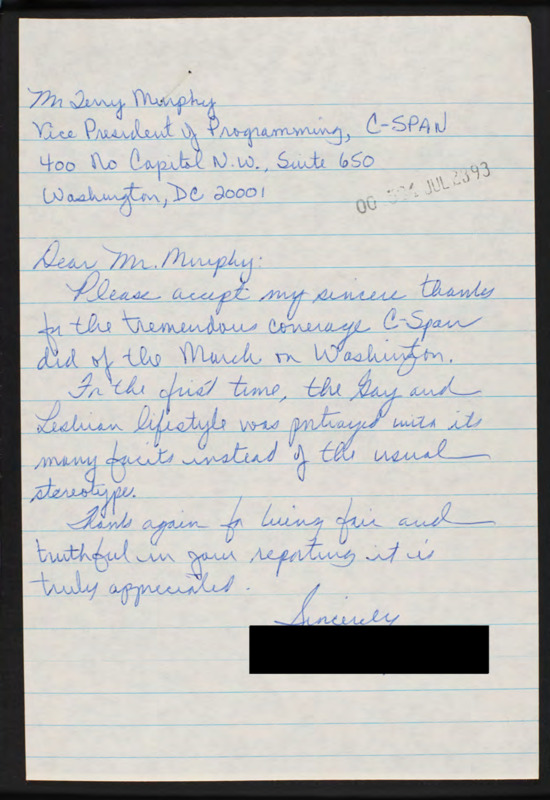 Mr Terry Murphy
Vice President of Programming, C-SPAN
400 No Capitol N.W., Suite 650
Washington, DC 20001
JUL 2393
Dear Mr. Murphy:
Please accept my sincere thanks
for the tremendous coverage C-Span
did of the March on Washington.
For the first time, the Gay and
Lesbian lifestyle was portrayed with its
many facits instead of the usual
stereotype.
Thanks again for being fair and
truthful in your reporting it is
truly appreciated.
Sincerely